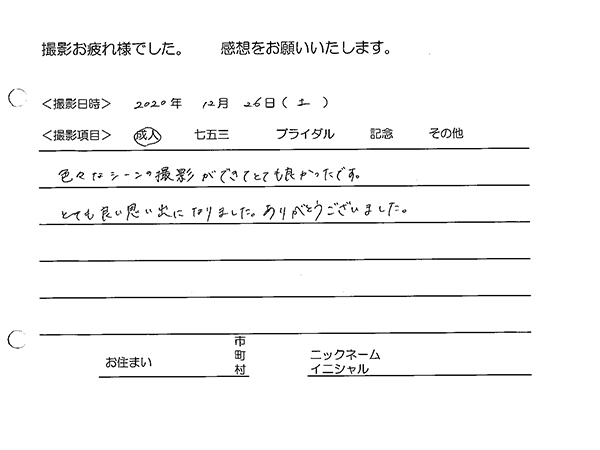 撮影お疲れ様でした。 感想をお願いいたします。
＜撮影日時＞ 2020年 12月 26日(土)
＜撮影項目＞ 成人 七五三 ブライダル 記念 その他
色々なシーンの撮影ができてとても良かったです。
とても良い思い出になりました。ありがとうございました。
お住まい 市町村 ニックネーム イニシャル